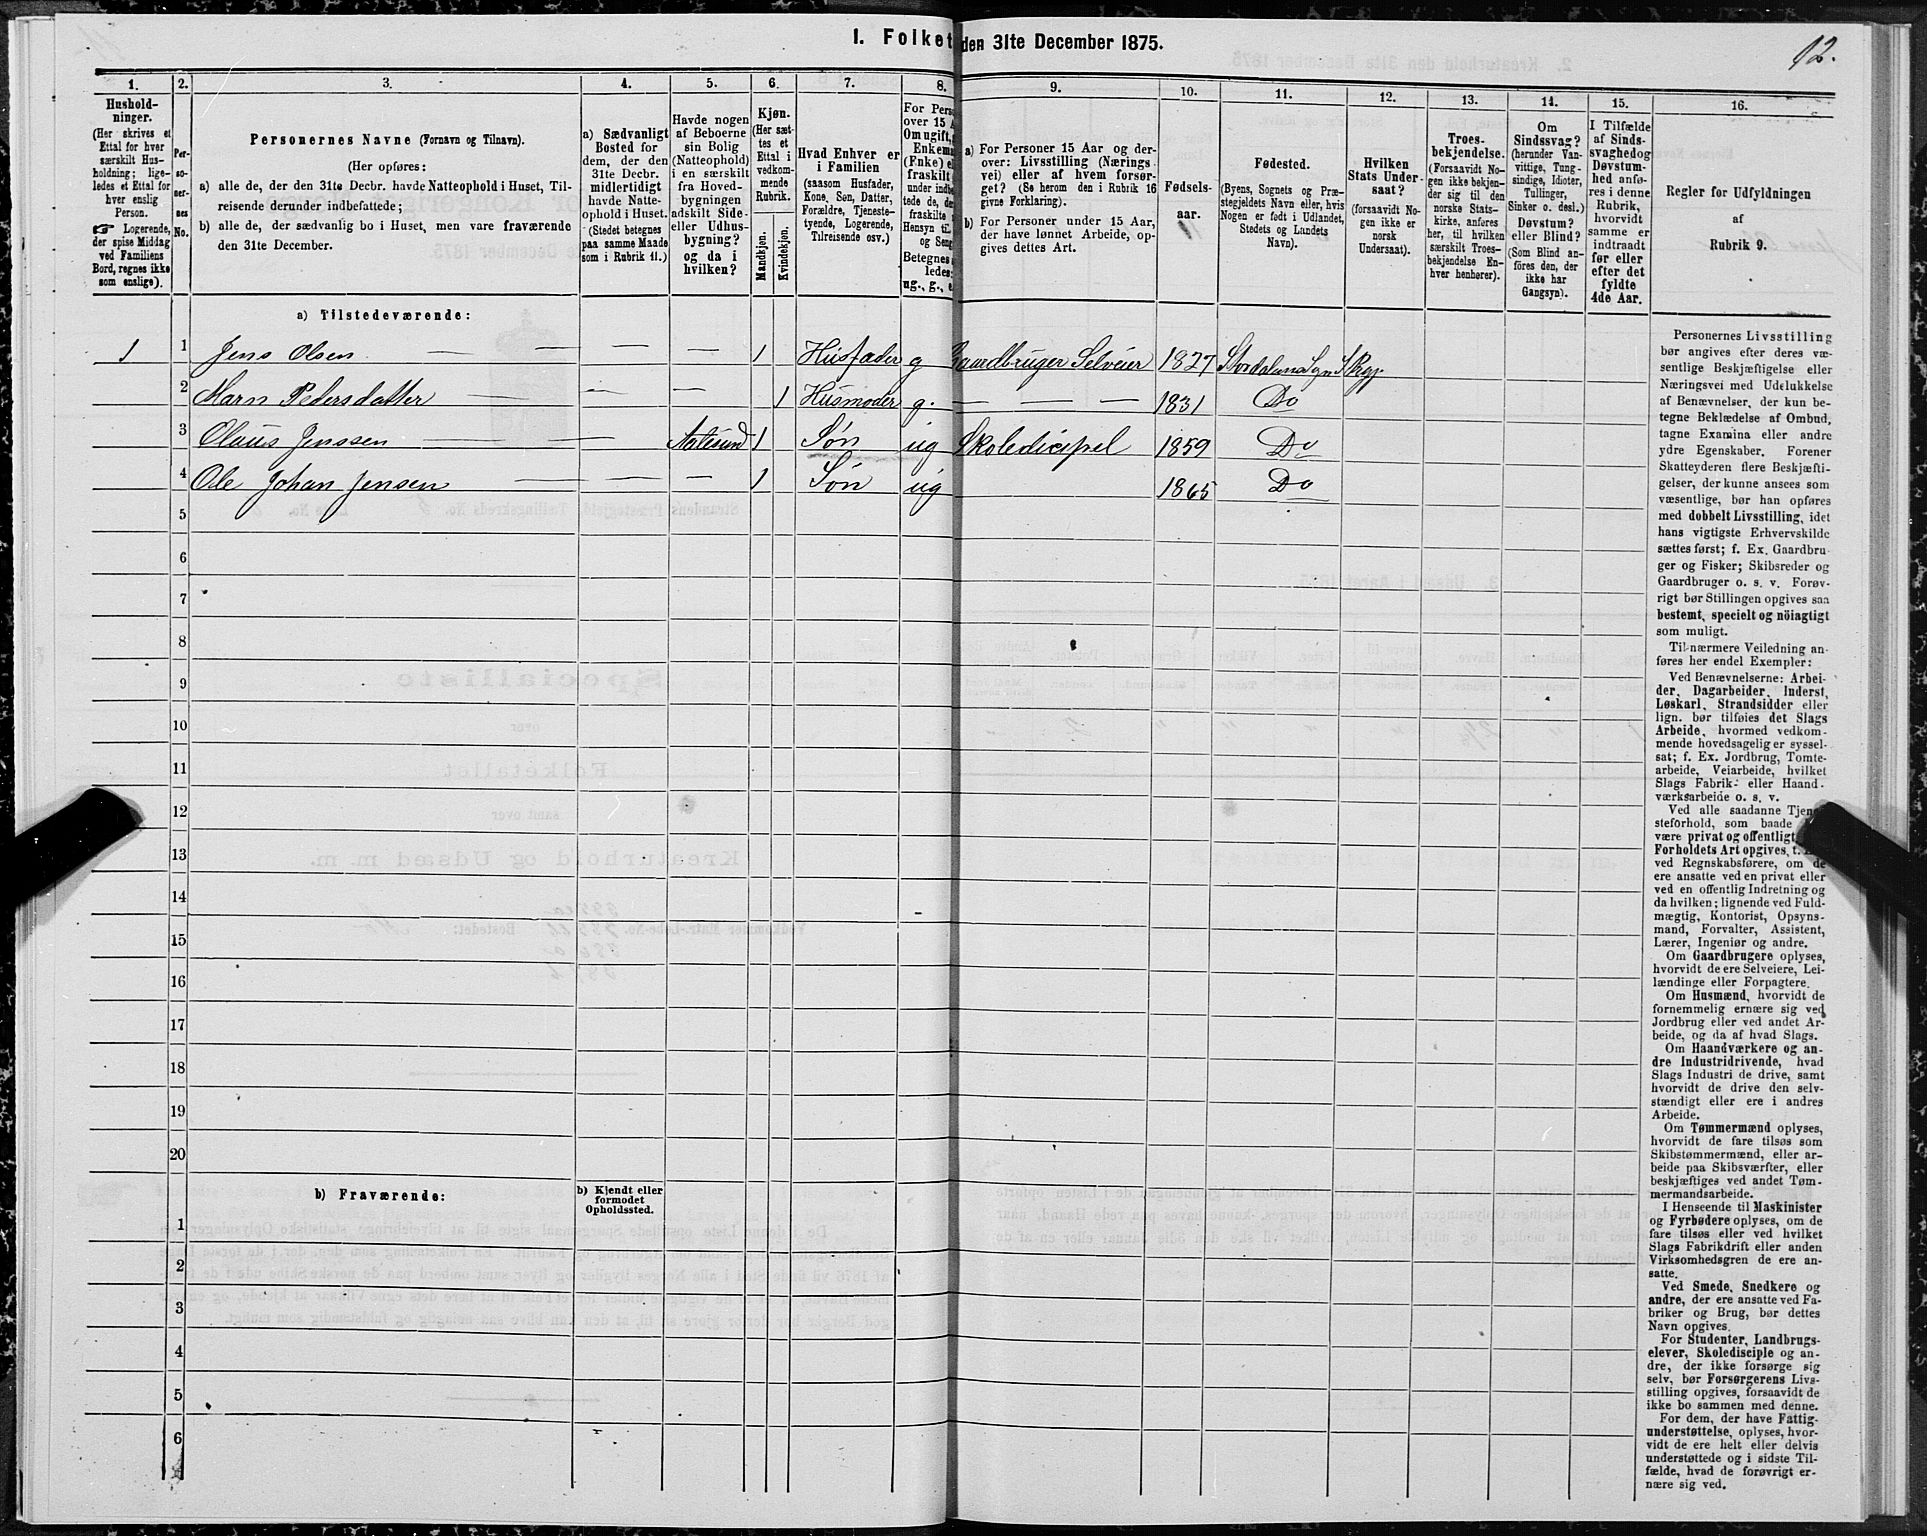 I. Folket den 31te December 1875.
12.
1. 2. 3. 4. 5. 6. 7. 8. 9. 10. 11. 12. 13. 14. 15. 16.
Hushold-
ninger.
(Her skrives et
Ettal for hver
særskilt Hus-
holdning; lige-
ledes et Ettal for
hver enslig
Person.
☞ Logerende,
der spise Middag
ved Familiens
Bord, regnes ikke
som enslige).
Per-
so-
ner-
nes
No.
Personernes Navne (Fornavn og Tilnavn).
(Her opføres:
a) alle de, der den 31te Decbr. havde Natteophold i Huset, Til-
reisende derunder indbefattede;
b) alle de, der sædvanlig bo i Huset, men vare fraværende
den 31te December.
a) Sædvanligt
Bosted for
dem, der den
31te Decbr.
midlertidigt
havde Natte-
ophold i Huset.
(Stedet betegnes
paa samme Maade
som i Rubrik 11.)
Havde nogen
af Beboerne
sin Bolig
(Natteophold)
i en særskilt
fra Hoved-
bygningen
adskilt Side-
eller Udhus-
bygning?
og da i
hvilken?
Kjøn.
(Her sæt-
tes et
Ettal i
vedkom-
mende
Rubrik.
Mandkjøn.
Kvindekjøn.
Hvad Enhver er
i Familien
(saasom Husfader,
Kone, Søn, Datter,
Forældre, Tjeneste-
tyende, Logerende,
Tilreisende osv.)
For Pers
over 15 A
Om ugift,
Enkem
(Fnke) e
fraskilt
under indb
tede de, d
fraskilte
Hensyn til
og Seng
Betegnes
ledes:
ug., g., e
a) For Personer 15 Aar og der-
over: Livsstilling (Nærings
vei) eller af hvem forsør-
get? (Se herom den i Rubrik 16
givne Forklaring).
b) For Personer under 15 Aar,
der have lønnet Arbeide, op-
gives dettes Art.
Fødsels-
aar.
Fødested.
(Byens, Sognets og Præ-
stegjeldets Navn eller, hvis
Nogen er født i Udlandet,
Stedets og Landets
Navn).
Hvilken
Stats Under-
saat?
(forsaavidt No-
gen ikke er
norsk
Undersaat).
Troes-
bekjendelse.
(Forsaavidt No-
gen ikke bekjen-
der sig til den
norske Stats-
kirke, anføres
her, til hvilken
særskilt Troes-
bekjendelse En-
hver henhører).
Om
Sindssvag?
(herunder Van-
vittige, Tung-
sindige, Idioter,
Tullinger,
Sinker o. desl.)
Døvstum?
eller Blind?
(Som Blind an-
føres den, der
ikke har
Gangsyn).
I Tilfælde
af Sinds-
svaghedog
Døvstum-
hed anfø-
res i denne
Rubrik,
hvorvidt
samme er
indtraadt
før eller
efter det
fyldte
4de Aar.
Regler for Udfyldningen
af
Rubrik 9.
a) Tilstedeværende:
1 1 Jens Olsen — — — — 1 Husfader g Gaardbruger Selveier 1827 Stordalens Sgn S Prgj.
2 Marn Pedersdatter — — 1 Husmoder g. — — — 1831 Do
3 Olaus Jenssen — — Aalesund 1 Søn ug Skoledicipel 1859 Do
4 Ole Johan Jensen — — — 1 Søn ug 1865 Do
5
6
7
8
9
10
11
12
13
14
15
16
17
18
19
20
b) Fraværende:
b) Kjendt eller
formodet
Opholdssted.
1
2
3
4
5
6
Personernes Livsstilling
bør angives efter deres væ-
sentlige Beskjæftigelse eller
Næringsvei med Udelukkelse
af Benævnelser, der kun be-
tegne Beklædelse af Ombud,
tagne Examina eller andre
ydre Egenskaber. Forener
Skatteyderen flere Beskjæfti-
gelser, der kunne ansees som
væsentlige, bør han opføres
med dobbelt Livsstilling, idet
hans vigtigste Erhvervskilde
sættes først; f. Ex. Gaardbru-
ger og Fisker; Skibsreder og
Gaardbruger o. s. v. Forøv-
rigt bør Stillingen opgives saa
bestemt, specielt og nöiagtigt
som muligt.
Til nærmere Veiledning an-
føres her endel Exempler:
Ved Benævnelserne: Arbei-
der, Dagarbeider, Inderst,
Løskarl, Strandsidder eller
lign. bør tilføies det Slags
Arbeide, hvormed vedkom-
mende hovedsagelig er syssel-
sat; f. Ex. Jordbrug, Tomte-
arbeide, Veiarbeide, hvilket
Slags Fabrik- eller Haand-
værksarbeide o. s. v.
Ved alle saadanne Tjene-
steforhold, som baade
være privat og offentligt,
Forholdets Art opgives, t.
ved Regnskabsførere, om de
ere ansatte ved en privat eller
ved en offentlig Indretning og
da hvilken; lignende ved Fuld-
mægtig, Kontorist, Opsyns-
mand, Forvalter, Assistent,
Lærer, Ingeniør og andre.
Om Gaardbrugere oplyses,
hvorvidt de ere Selveiere, Lei-
lændinge eller Forpagtere.
Om Husmænd, hvorvidt de
fornemmelig ernære sig ved
Jordbrug eller ved andet Ar-
beide, og da af hvad Slags.
Om Haandværkere og an-
dre Industridrivende, hvad
Slags Industri de drive, samt
hvorvidt de drive den selv-
stændigt eller ere i andres
Arbeide.
Om Tømmermænd oplyses,
hvorvidt de fare tilsøs som
Skibstømmermænd, eller ar-
beide paa Skibsværfter, eller
beskjæftiges ved andet Tøm-
mermandsarbeide.
I Henseende til Maskinister
og Fyrbødere oplyses, om de
fare tilsøs eller ved hvilket
Slags Fabrikdrift eller anden
Virksomhedsgren de ere an-
satte.
Ved Smede, Snedkere og
andre, der ere ansatte ved Fa-
briker og Brug, bør dettes
Navn opgives.
For Studenter, Landbrugs-
elever, Skoledisciple og an-
dre, der ikke forsørge sig
selv, bør Forsørgerens Livs-
stilling opgives, forsaavidt de
ikke bo sammen med denne.
For dem, der have Fattig-
understøttelse, oplyses, hvor-
vidt de ere helt eller delvis
understøttede og i sidste Til-
fælde, hvad de forøvrigt er-
nære sig ved.